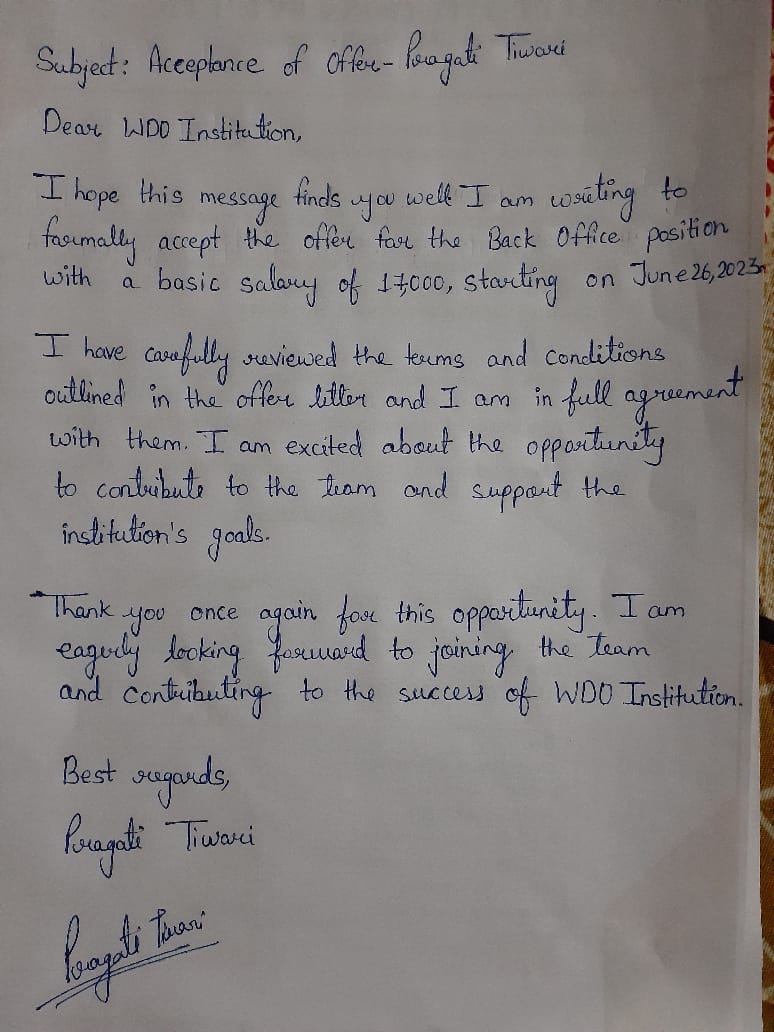 Subject: Acceptance of Offer- Pragati Tiwari
Dear WDO Institution,
I hope this message finds you well I am writing to
formally accept the offer for the Back Office position
with a basic salary of 17,000, starting on June 26, 2023
I have carefully reviewed the terms and conditions
outlined in the offer letter and I am in full agreement
with them. I am excited about the opportunity
to contribute to the team and support the
institution's goals.
Thank you once again for this opportunity. I am
eagerly looking forward to joining the team
and contributing to the success of WDO Institution.
Best regards,
Pragati Tiwari
Pragati Tiwari